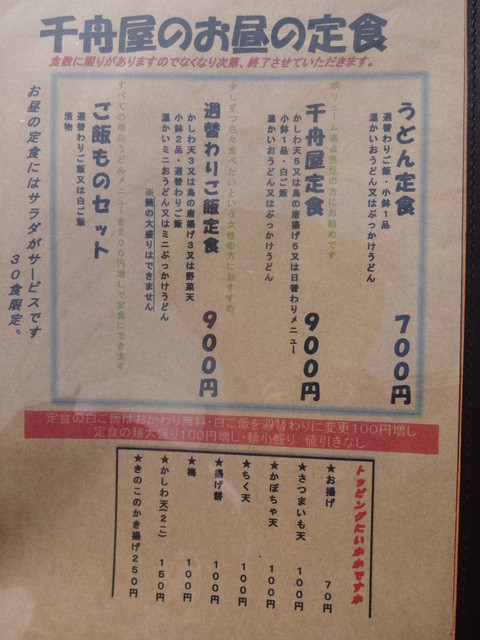 千舟屋のお昼の定食
食数に限りがありますのでなくなり次第、終了させていただきます。
うどん定食 700円
週替わりご飯・小鉢1品
温かいおうどん又はぶっかけうどん
ボリューム満点男性の方にお勧めです
千舟屋定食 900円
かしわ天5又は鳥の唐揚げ5又は日替わりメニュー
小鉢1品・白ご飯
温かいおうどん又はぶっかけうどん
少しずつ色々食べたいという女性の方におすすめ。
週替わりご飯定食 900円
かしわ天3又は鳥の唐揚げ3又は野菜天
小鉢1品・週替わりご飯
温かいミニおうどん又はミニぶっかけうどん
※麺の大盛りはできません
すべての単品うどんメニューを200円増しで定食にできます
ご飯ものセット
週替わりご飯又は白ご飯
漬物
お昼の定食にはサラダがサービスです
30食限定。
定食の白ご飯はおかわり無料・白ご飯を週替わりに変更100円増し
定食の麺大盛り100円増し・麺小盛り 値引きなし
トッピングにいかがですか
★お揚げ 70円
★さつまいも天 100円
★かぼちゃ天 100円
★ちく天 100円
★揚げ餅 100円
★梅 100円
★かしわ天(2こ) 150円
★きのこのかき揚げ250円